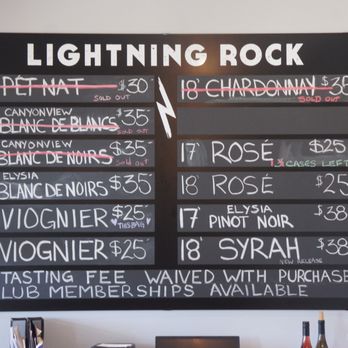 LIGHTNING ROCK
PÉT NAT $30
SOLD OUT
CANYONVIEW
BLANC DE BLANCS $35
SOLD OUT
CANYONVIEW
BLANC DE NOIRS $35
SOLD OUT
ELYSIA
BLANC DE NOIRS $35
VIOGNIER $25
THIS BAG
VIOGNIER $25
18' CHARDONNAY $35
SOLD OUT
17' ROSÉ $25
CASES LEFT
18' ROSÉ $25
17' ELYSIA
PINOT NOIR $38
18' SYRAH $38
NEW RELEASE
TASTING FEE WAIVED WITH PURCHASE
LUB MEMBERSHIPS AVAILABLE